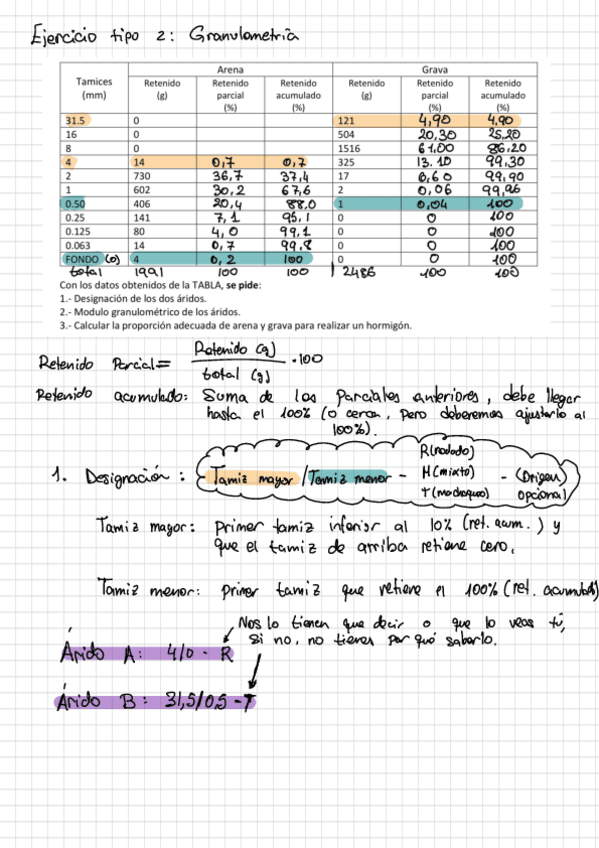 Ejercicio tipo 2: Granulometría
Arena Grava
Tamices (mm) Retenido (g) Retenido parcial (%) Retenido acumulado (%) Retenido (g) Retenido parcial (%) Retenido acumulado (%)
31.5 0 121 4,90 4,90
16 0 504 20,30 25,20
8 0 1516 61,00 86,20
4 14 0,7 0,7 325 13.10 99,30
2 730 36,7 37,4 17 0,60 99,90
1 602 30,2 67,6 2 0,06 99,96
0.50 406 20,4 88,0 1 0,04 100
0.25 141 7,1 95,1 0 0 100
0.125 80 4,0 99,1 0 0 100
0.063 14 0,7 99,8 0 0 100
FONDO (0) 4 0,2 100 0 0 100
total 1991 100 100 2486 100 100
Con los datos obtenidos de la TABLA, se pide:
1.- Designación de los dos áridos.
2.- Modulo granulométrico de los áridos.
3.- Calcular la proporción adecuada de arena y grava para realizar un hormigón.
Retenido Parcial = Retenido (g) / total (g) · 100
Retenido acumulado: Suma de los parciales anteriores, debe llegar
hasta el 100% (o cerca, pero deberemos ajustarlo al
100%).
R(rodado)
1. Designación: - Tamiz mayor / Tamiz menor - M(mixto) - (Origen)
T(machaqueo) opcional
Tamiz mayor: primer tamiz inferior al 10% (ret. acum.) y
que el tamiz de arriba retiene cero.
Tamiz menor: primer tamiz que retiene el 100% (ret. acumulado)
Nos lo tienen que decir o que lo veas tú,
si no, no tienes por qué saberlo.
Árido A: 4/0 - R
Árido B: 31,5/0,5 - T